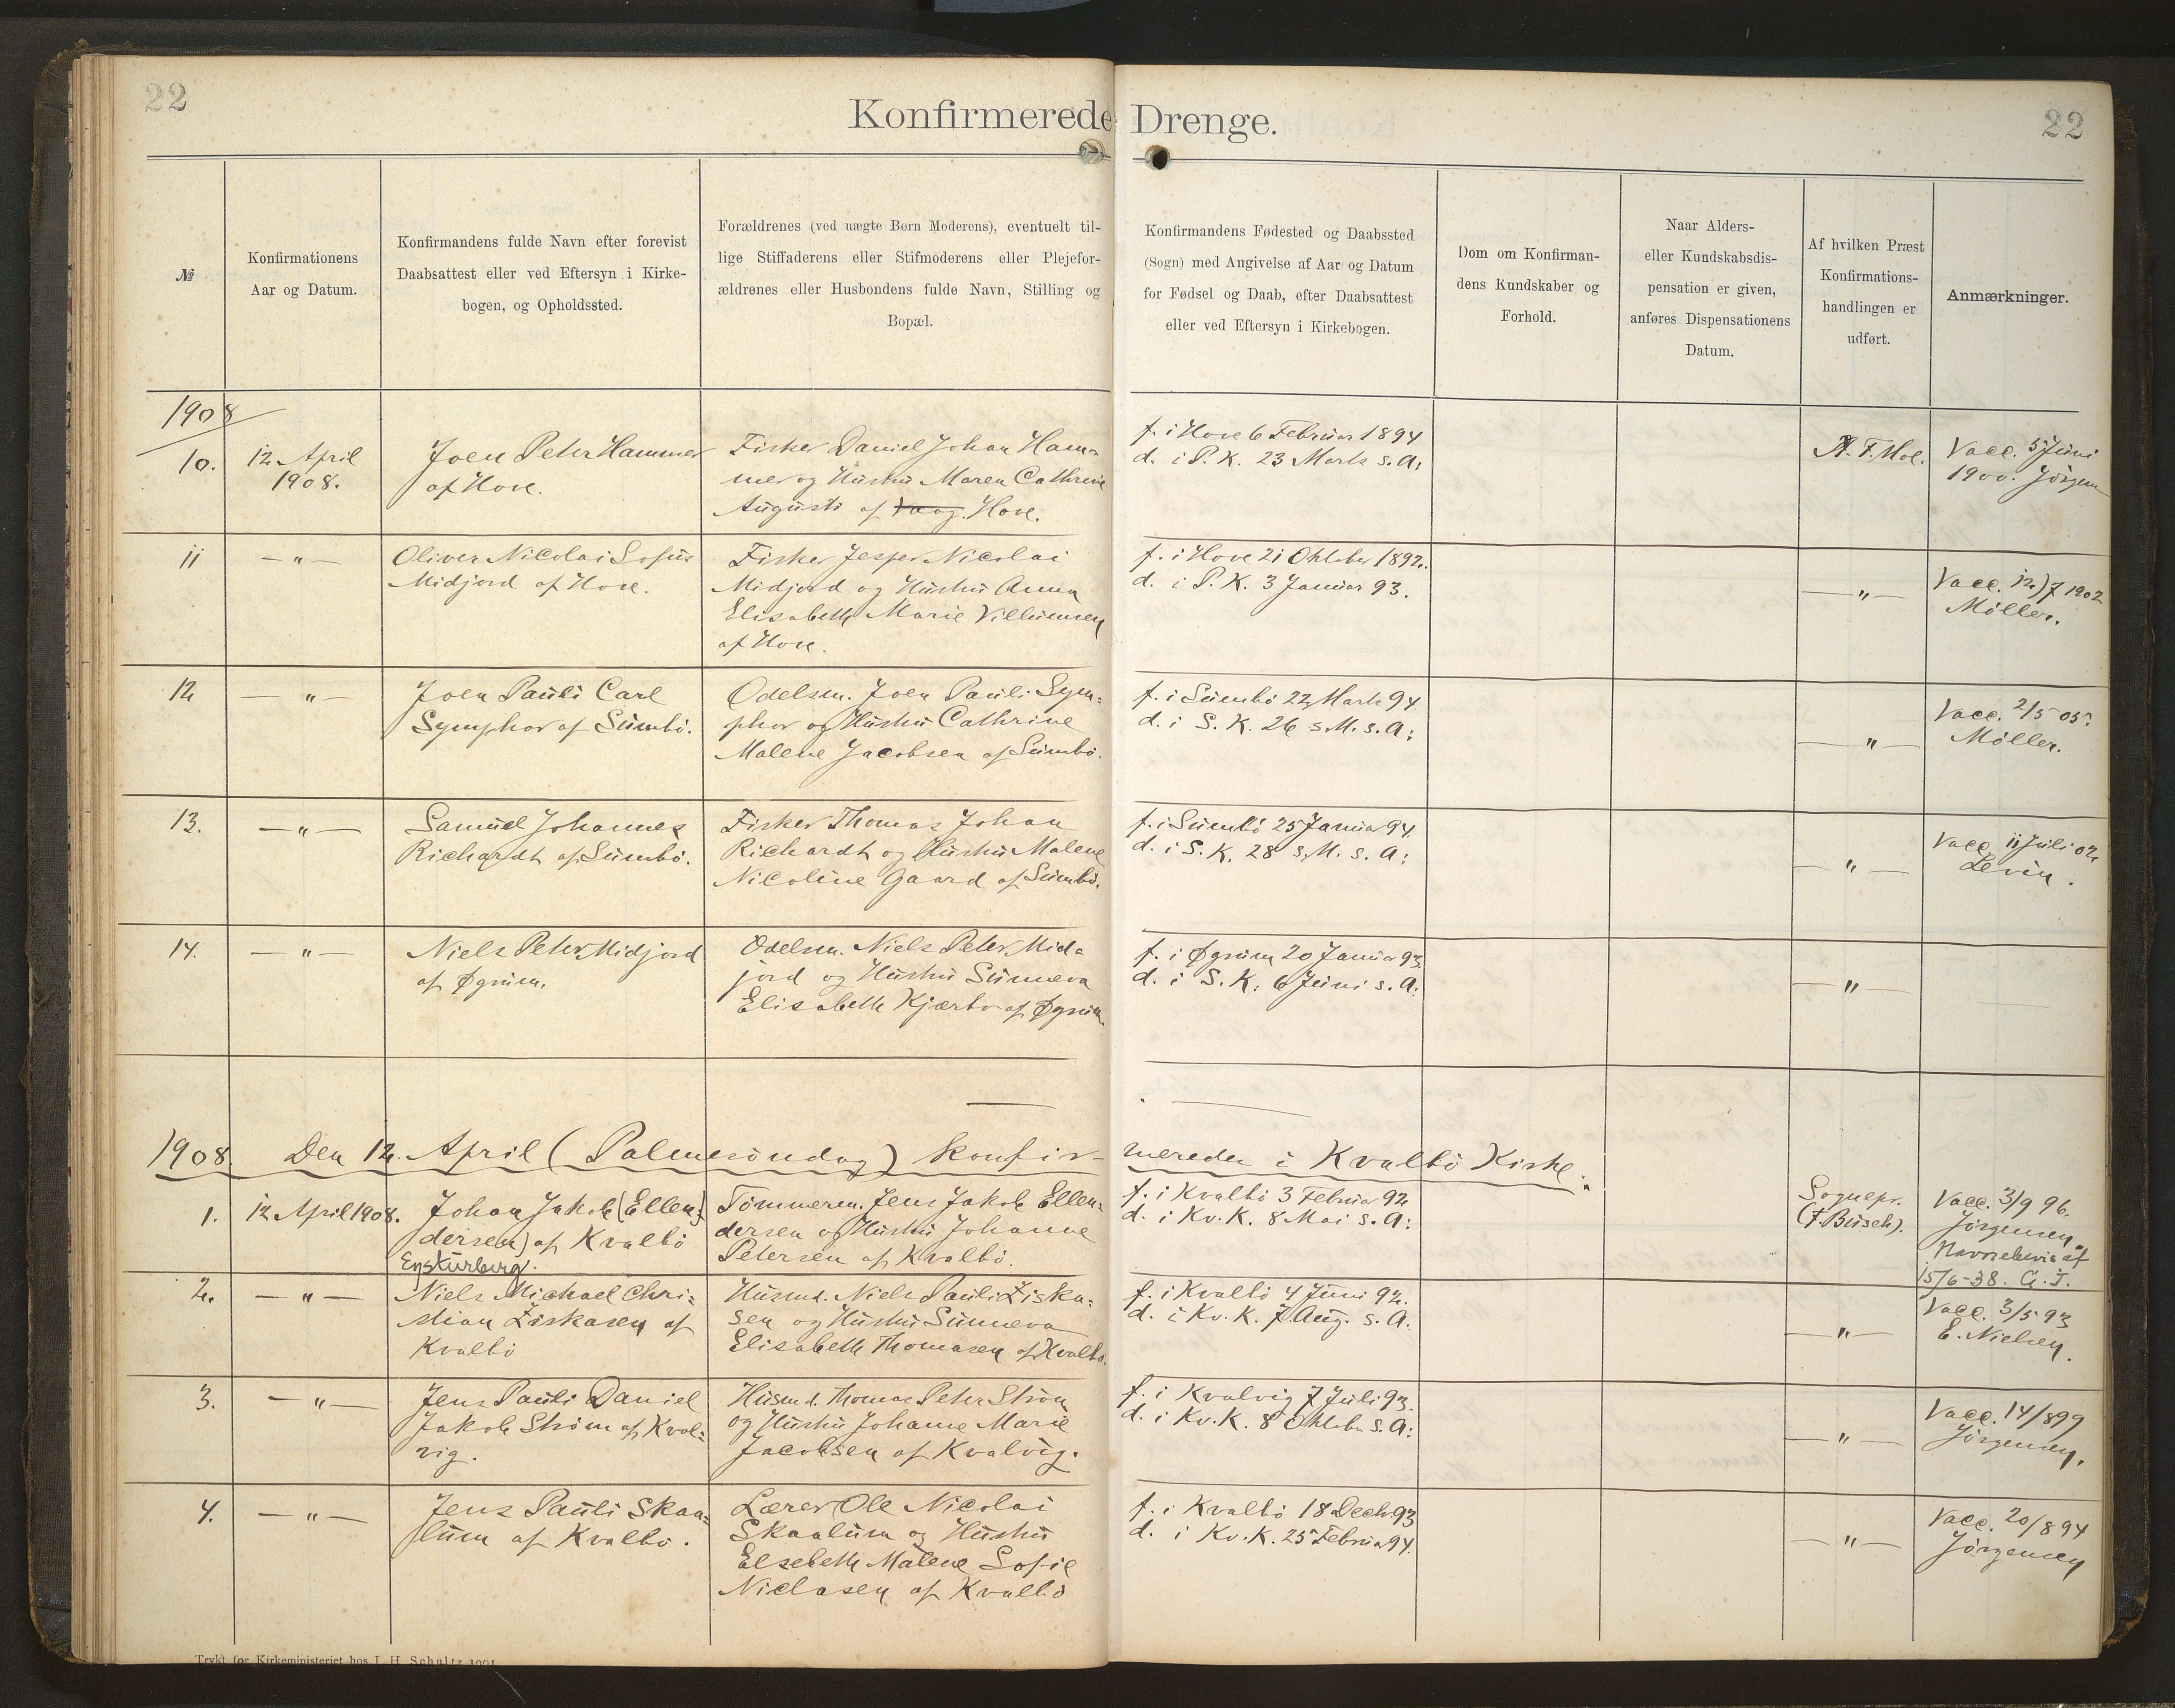 22
Konfirmerede Drenge.
22
№
Konfirmationens
Aar og Datum.
Konfirmandens fulde Navn efter forevist
Daabsattest eller ved Eftersyn i Kirke-
bogen, og Opholdssted.
Forældrenes (ved uægte Børn Moderens), eventuelt til-
lige Stiffaderens eller Stifmoderens eller Plejefor-
ældrenes eller Husbondens fulde Navn, Stilling og
Bopæl.
Konfirmandens Fødested og Daabssted
(Sogn) med Angivelse af Aar og Datum
for Fødsel og Daab, efter Daabsattest
eller ved Eftersyn i Kirkebogen.
Dom om Konfirman-
dens Kundskaber og
Forhold.
Naar Alders-
eller Kundskabsdis-
pensation er given,
anføres Dispensationens
Datum.
Af hvilken Præst
Konfirmations-
handlingen er
udført.
Anmærkninger.
1908
10.
12 April
1908.
Joen Peter Hammer
af Hove.
Fisker Daniel Johan Ham=
mer og Hustru Maren Cathrine
Augusti af Vaag. Hove.
f. i Hove 6 Februar 1894
d. i P. K. 23 Marts s. A:
A. F. Moe.
Vacc. 5 Juni
1900. Jörgen
11
— " —
Oliver Nicolai Sofus
Midjord af Hove.
Fisker Jesper Nicolai
Midjord og Hustru Anna
Elisabeth Marie Villumsen
af Hove.
f. i Hove 21 Oktober 1892.
d. i P. K. 3 Januar 93.
— " —
Vacc. 12/7 1902
Möller.
12
— " —
Joen Pauli Carl
Symphor af Sumbö.
Odelsm. Joen Pauli Sym=
phor og Hustru Cathrine
Malene Jacobsen af Sumbö.
f. i Sumbö 22 Marts 94
d. i S. K. 26 s. M. s. A:
— " —
Vacc. 2/5 05.
Möller.
13.
— " —
Samuel Johannes
Richardt af Sumbö.
Fisker Thomas Johan
Richardt og Hustru Malene
Nicoline Gaard af Sumbö.
f. i Sumbö 25 Januar 94.
d. i S. K. 28 s. M. s. A:
— " —
Vacc. 11 Juli 02
Levin.
14.
— " —
Niels Peter Midjord
af Øgrum.
Odelsm. Niels Peter Mid=
jord og Hustru Sunneva
Elisabeth Kjærbo af Øgrum
f. i Øgrum 20 Januar 93.
d. i S. K. 6 Juni s. A:
— " —
1908. Den 12. April (Palmesöndag) konfir-
merede i Kvalbö Kirke.
1.
12 April 1908.
Johan Jakob (Ellen=
dersen) af Kvalbö
Eysturberg.
Tömmerm. Jens Jakob Ellen=
dersen og Hustru Johanne
Petersen af Kvalbö.
f. i Kvalbö 3 Februar 92
d. i Kv. K. 8 Mai s. A:
Sognepr.
(F. Busch).
Vacc. 3/9 96.
Jörgensen.
Navnebevis af
15/6-38. G. J.
2.
— " —
Niels Michael Chri=
stian Ziskasen af
Kvalbö
Husmd. Niels Pauli Ziska=
sen og Hustru Sunneva
Elisabeth Thomasen af Kvalbö.
f. i Kvalbö 4 Juni 92.
d. i Kv. K. 7 Aug. s. A.
— " —
Vacc. 3/5 93
E. Nielsen.
3.
— " —
Jens Pauli Daniel
Jakob Ström af Kval=
vig.
Husmd. Thomas Peter Ström
og Hustru Johanne Marie
Jacobsen af Kvalvig.
f. i Kvalvig 7 Juli 93.
d. i Kv. K. 8 Oktober s. A:
— " —
Vacc. 14/8 99
Jörgensen.
4.
— " —
Jens Pauli Skaa=
lum af Kvalbö.
Lærer Ole Nicolai
Skaalum og Hustru
Elsebeth Malene Sofie
Niclasen af Kvalbö
f. i Kvalbö 18 Decb. 93
d. i Kv. K. 25 Februar 94.
— " —
Vacc. 20/8 94
Jörgensen
Trykt for Kirkeministeriet hos J. H. Schultz 1901